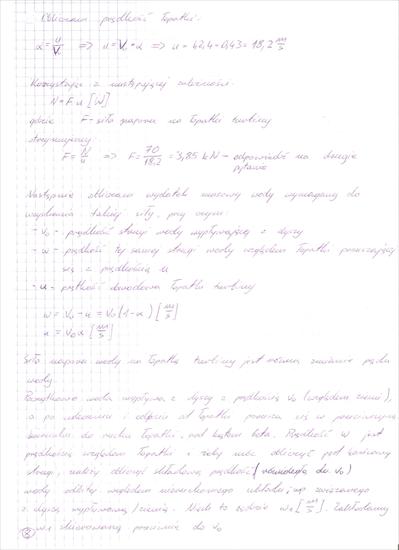 Obliczam prędkość łopatki:
α = u/V₀ => u = V₀·α => u = 42,4·0,43 = 18,2 m/s
Korzystając z następującej zależności:
N = F·u [W]
gdzie F - siła naporu na łopatki turbiny
otrzymujemy:
F = N/u => F = 70/18,2 = 3,85 kN - odpowiedź na drugie
pytanie
Następnie obliczam wydatek masowy wody wymagany do
wywołania takiej siły, przy czym:
- v₀ - prędkość strugi wody wypływającej z dyszy
- w - prędkość tej samej strugi wody względem łopatki poruszającej
się z prędkością u
- u - prędkość obwodowa łopatki turbiny
w = V₀ - u = V₀(1-α) [m/s]
u = V₀α [m/s]
Siła naporu wody na łopatkę turbiny jest równa zmianie pędu
wody.
Początkowo woda wypływa z dyszy z prędkością v₀ (względem ziemi),
a po uderzeniu i odbiciu od łopatki porusza się w przeciwnym
kierunku do ruchu łopatki, pod kątem beta. Prędkość w jest
prędkością względem łopatki i żeby móc obliczyć pęd końcowy
strugi, należy obliczyć składową prędkości (równoległą do v₀)
wody odbitej względem nieruchomego układu, np związanego
z dyszą wypływową / ziemią. Niech to będzie w₁ [m/s]. Zakładamy
w₁ skierowaną przeciwnie do v₀
3